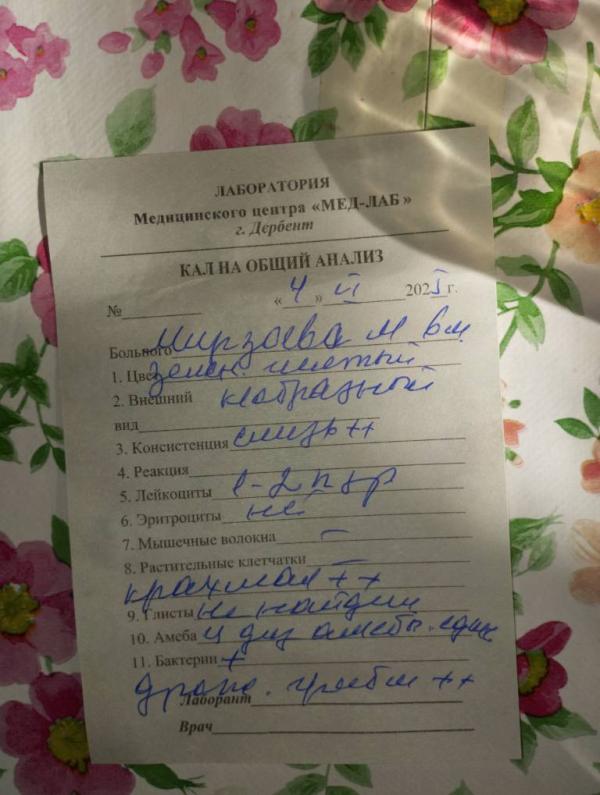 ЛАБОРАТОРИЯ
Медицинского центра «МЕД-ЛАБ»
г. Дербент
КАЛ НА ОБЩИЙ АНАЛИЗ
№ «4» VI 2025 г.
Больного Мирзоева М 6м
1. Цвет зелен. желтый
2. Внешний кашобразный
вид
3. Консистенция слизь ++
4. Реакция
5. Лейкоциты 1-2 п зр
6. Эритроциты не
7. Мышечные волокна –
8. Растительные клетчатки –
крахмал ++
9. Глисты не найден
10. Амеба ц диз амебы. един
11. Бактерии +
дрож. грибы ++
Лаборант
Врач